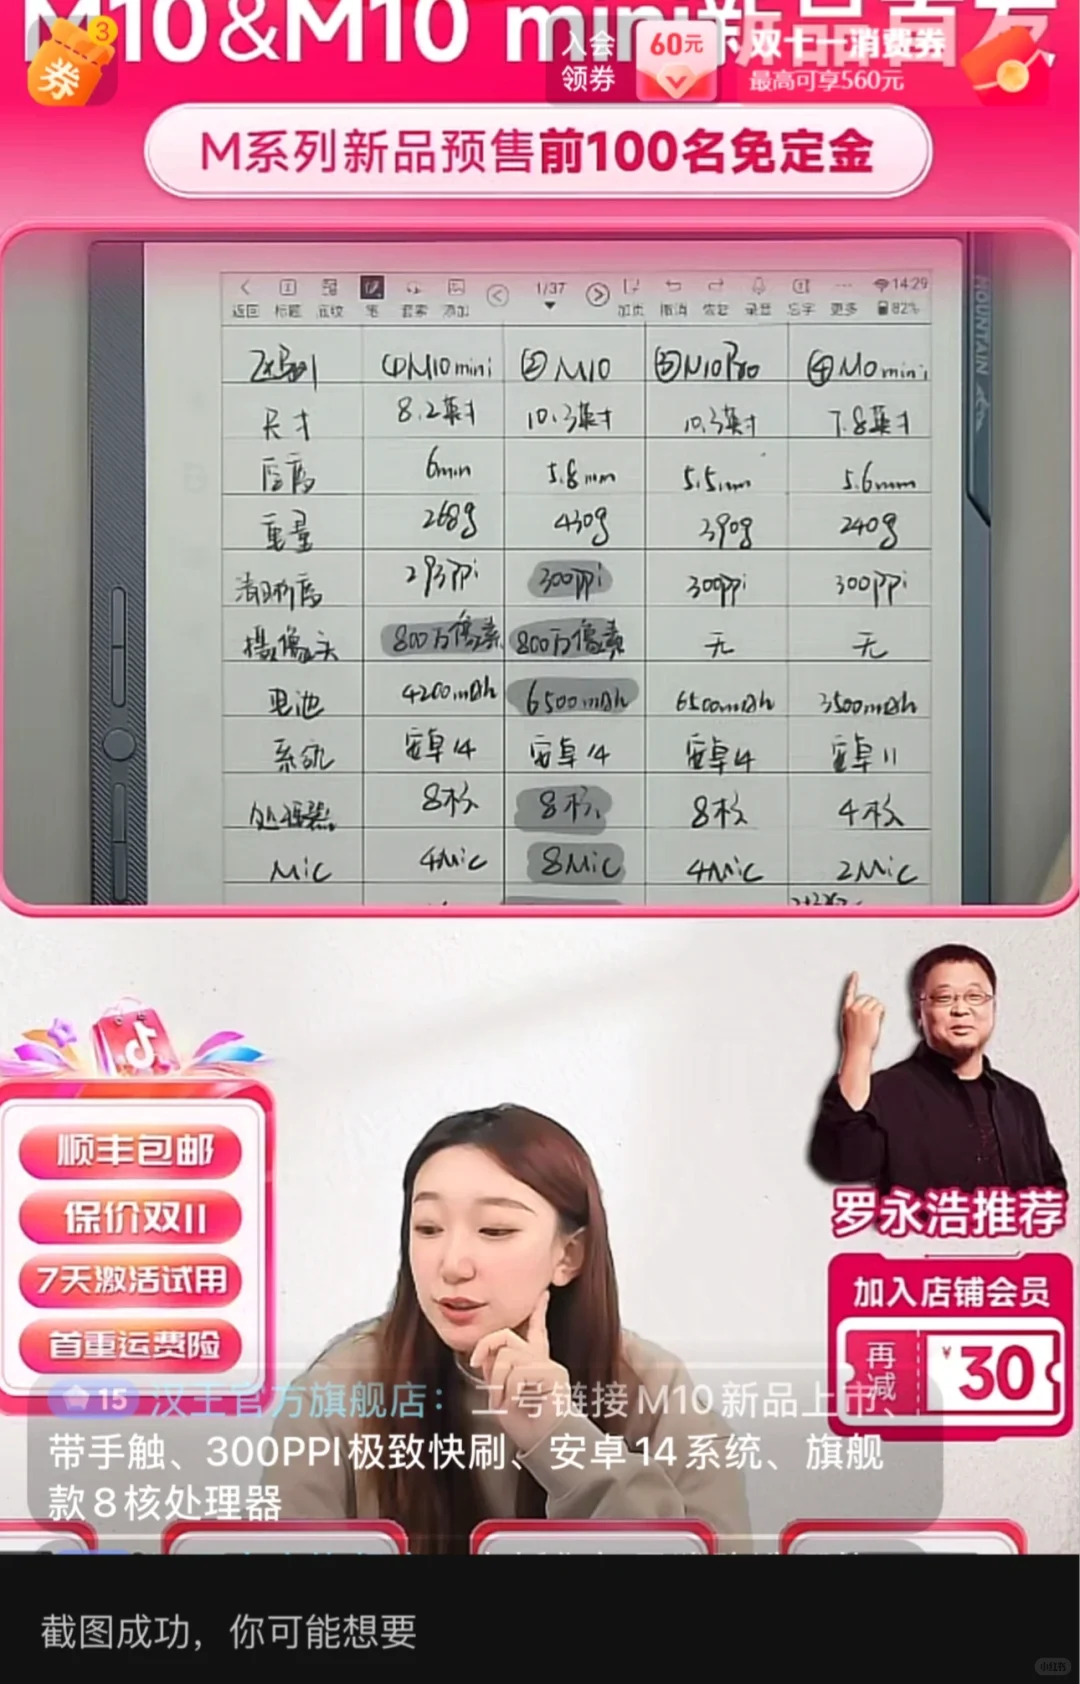 M10&M10 mini新品首发
3
券
入会
领券
60元
双十一消费券
最高可享560元
M系列新品预售前100名免定金
1/37
14:29
返回 标题 底纹 笔 套索 添加 加页 撤消 恢复 录音 忘字 更多 82%
系列 ①M10 mini ②M10 ③M10Pro ④M0 mini
尺寸 8.2英寸 10.3英寸 10.3英寸 7.8英寸
厚度 6mm 5.8mm 5.5mm 5.6mm
重量 268g 430g 390g 240g
清晰度 293ppi 300ppi 300ppi 300ppi
摄像头 800万像素 800万像素 无 无
电池 4200mAh 6500mAh 6500mAh 3500mAh
系统 安卓14 安卓14 安卓14 安卓11
处理器 8核 8核 8核 4核
Mic 4Mic 8Mic 4Mic 2Mic
MOUNTAIN
顺丰包邮
保价双11
7天激活试用
首重运费险
罗永浩推荐
加入店铺会员
再减
¥30
15 汉王官方旗舰店：二号链接M10新品上市、
带手触、300PPI极致快刷、安卓14系统、旗舰
款8核处理器
截图成功，你可能想要
小红书